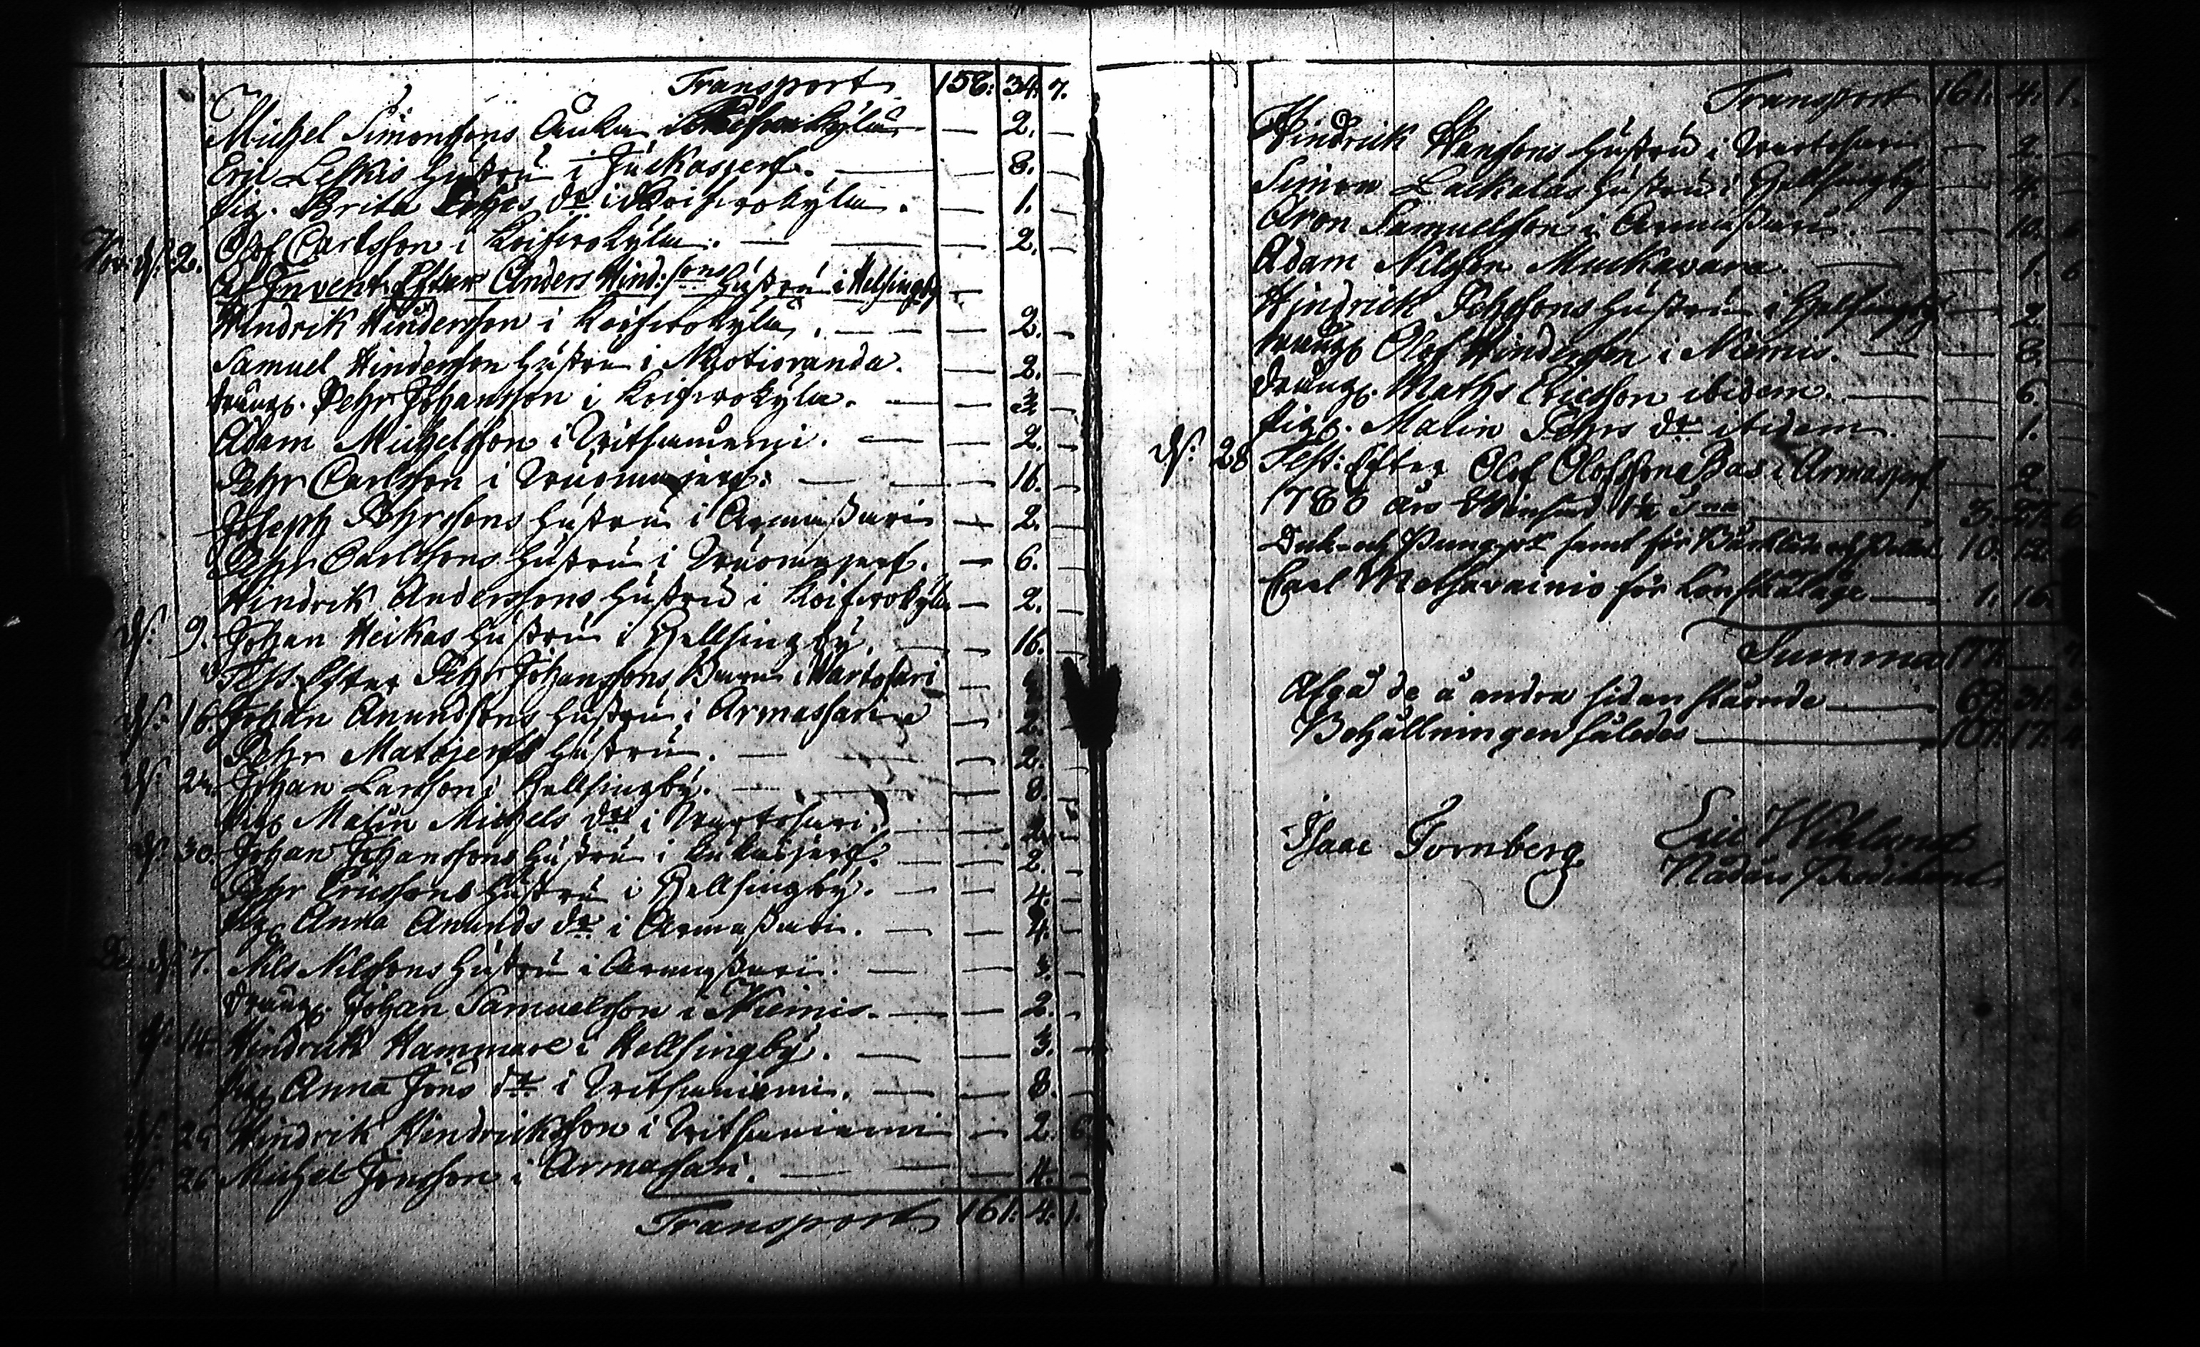 Transport 158: 34. 7.
Michel Simonssons Änka i — 2. —
Eric Leskis hustru i Juckasjerf. — 8. —
pig. Brita dr i Koifwokÿla. — 1. —
Nov. d: 2. Olof Carlsson i Koifwokÿla. — 2. —
af Invent. Efter Anders Hind:sons hustru i Helsingbÿ —
Hindrik Hindersson i Koifwokÿla. — 2. —
Samuel Hindersson hustru i Niotioranda. — 2. —
dräng. Pehr Johansson i Koifwokÿla. —
Adam Michelsson i Witsaniemi. — 2. —
Pehr Carlsson i Wuomajerf: — 16. —
Joseph Pehrssons hustru i Armassari — 2. —
Pehr Carlssons hustru i Wuomajerf. — 6. —
Hindrik Anderssons hustru i Koifwokÿla — 2. —
d: 9. Johan Heikas hustru i Hellsingbÿ. — 16. —
Test: Efter Pehr Johanssons Barn i Wartosari —
d: 16. Johan Anundssons hustru i Armassari — 2. —
Pehr Matojerfs hustru. — 2. —
d: 24. Johan Larsson i Hellsingbÿ. — 8. —
pig. Malin Michels dr i Wartosari. — 2. —
d: 30. Johan Johanssons hustru i — 2. —
Pehr Ericssons hustru i Hellsingbÿ. — 4. —
pig. Anna Anunds dr i Armassari. — 4. —
De d: 7. Nils Nilssons hustru i Armassari. — 3. —
dräng. Johan Samuelsson i Niemis. — 2. —
d: 14. Hindrik Hammare i Hellsingbÿ. — 3. —
pig. Anna Jöns dr i Witsaniemi. — 8. —
d: 25 Hindrik Hindricksson i Witsaniemi — 2. 6
d: 26 Michel Jonsson i Armassari. — 4. —
Transport 161: 4. 1.
Transport 161: 4. 1.
Hindrick Hanssons hustru i Wartosari — 2. —
Simon Lackalas hustru i Hellsingbÿ — 4. —
Aron Samuelsson i Armassari — 10.
Adam Nilsson Muckavara. — 1. 6
Hindrick Pehrssons hustru i Helsingbÿ — 2. —
dräng. Olof Hindersson i Niemis. — 8. —
dräng. Mats Ericsson ibidem. — 6. —
pig. Malin Pehrs dr ibidem. — 1. —
d: 28 Test: Efter Olof Olofssons i Armasjerf — 2. —
1788 års — 3. 27. 6
och samt för 10. 12.
Carl Metsavainio för — 1. 16.
Summa 177. — 7.
Afgå de å andra sidan stående — 69. 31. 3
Behållningen således — 107. 17. 4.
Isaac Tornberg Eric Wiklund
Nådårs Predikant